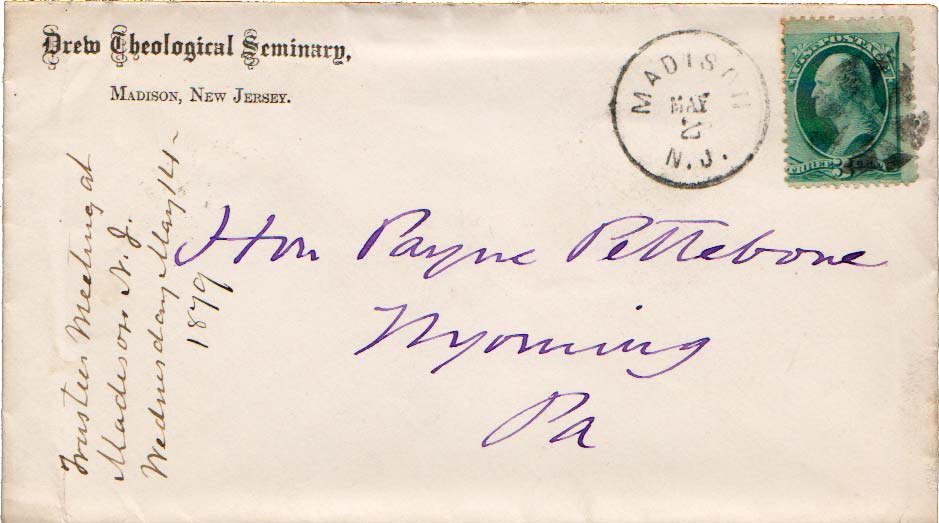 Drew Theological Seminary,
Madison, New Jersey.
MADISON
MAY
2
N.J.
U.S. POSTAGE
THREE 3
Hon Payne Pettebone
Wyoming
Pa
Trustees Meeting at
Madison N. J.
Wednesday May 14-
1879